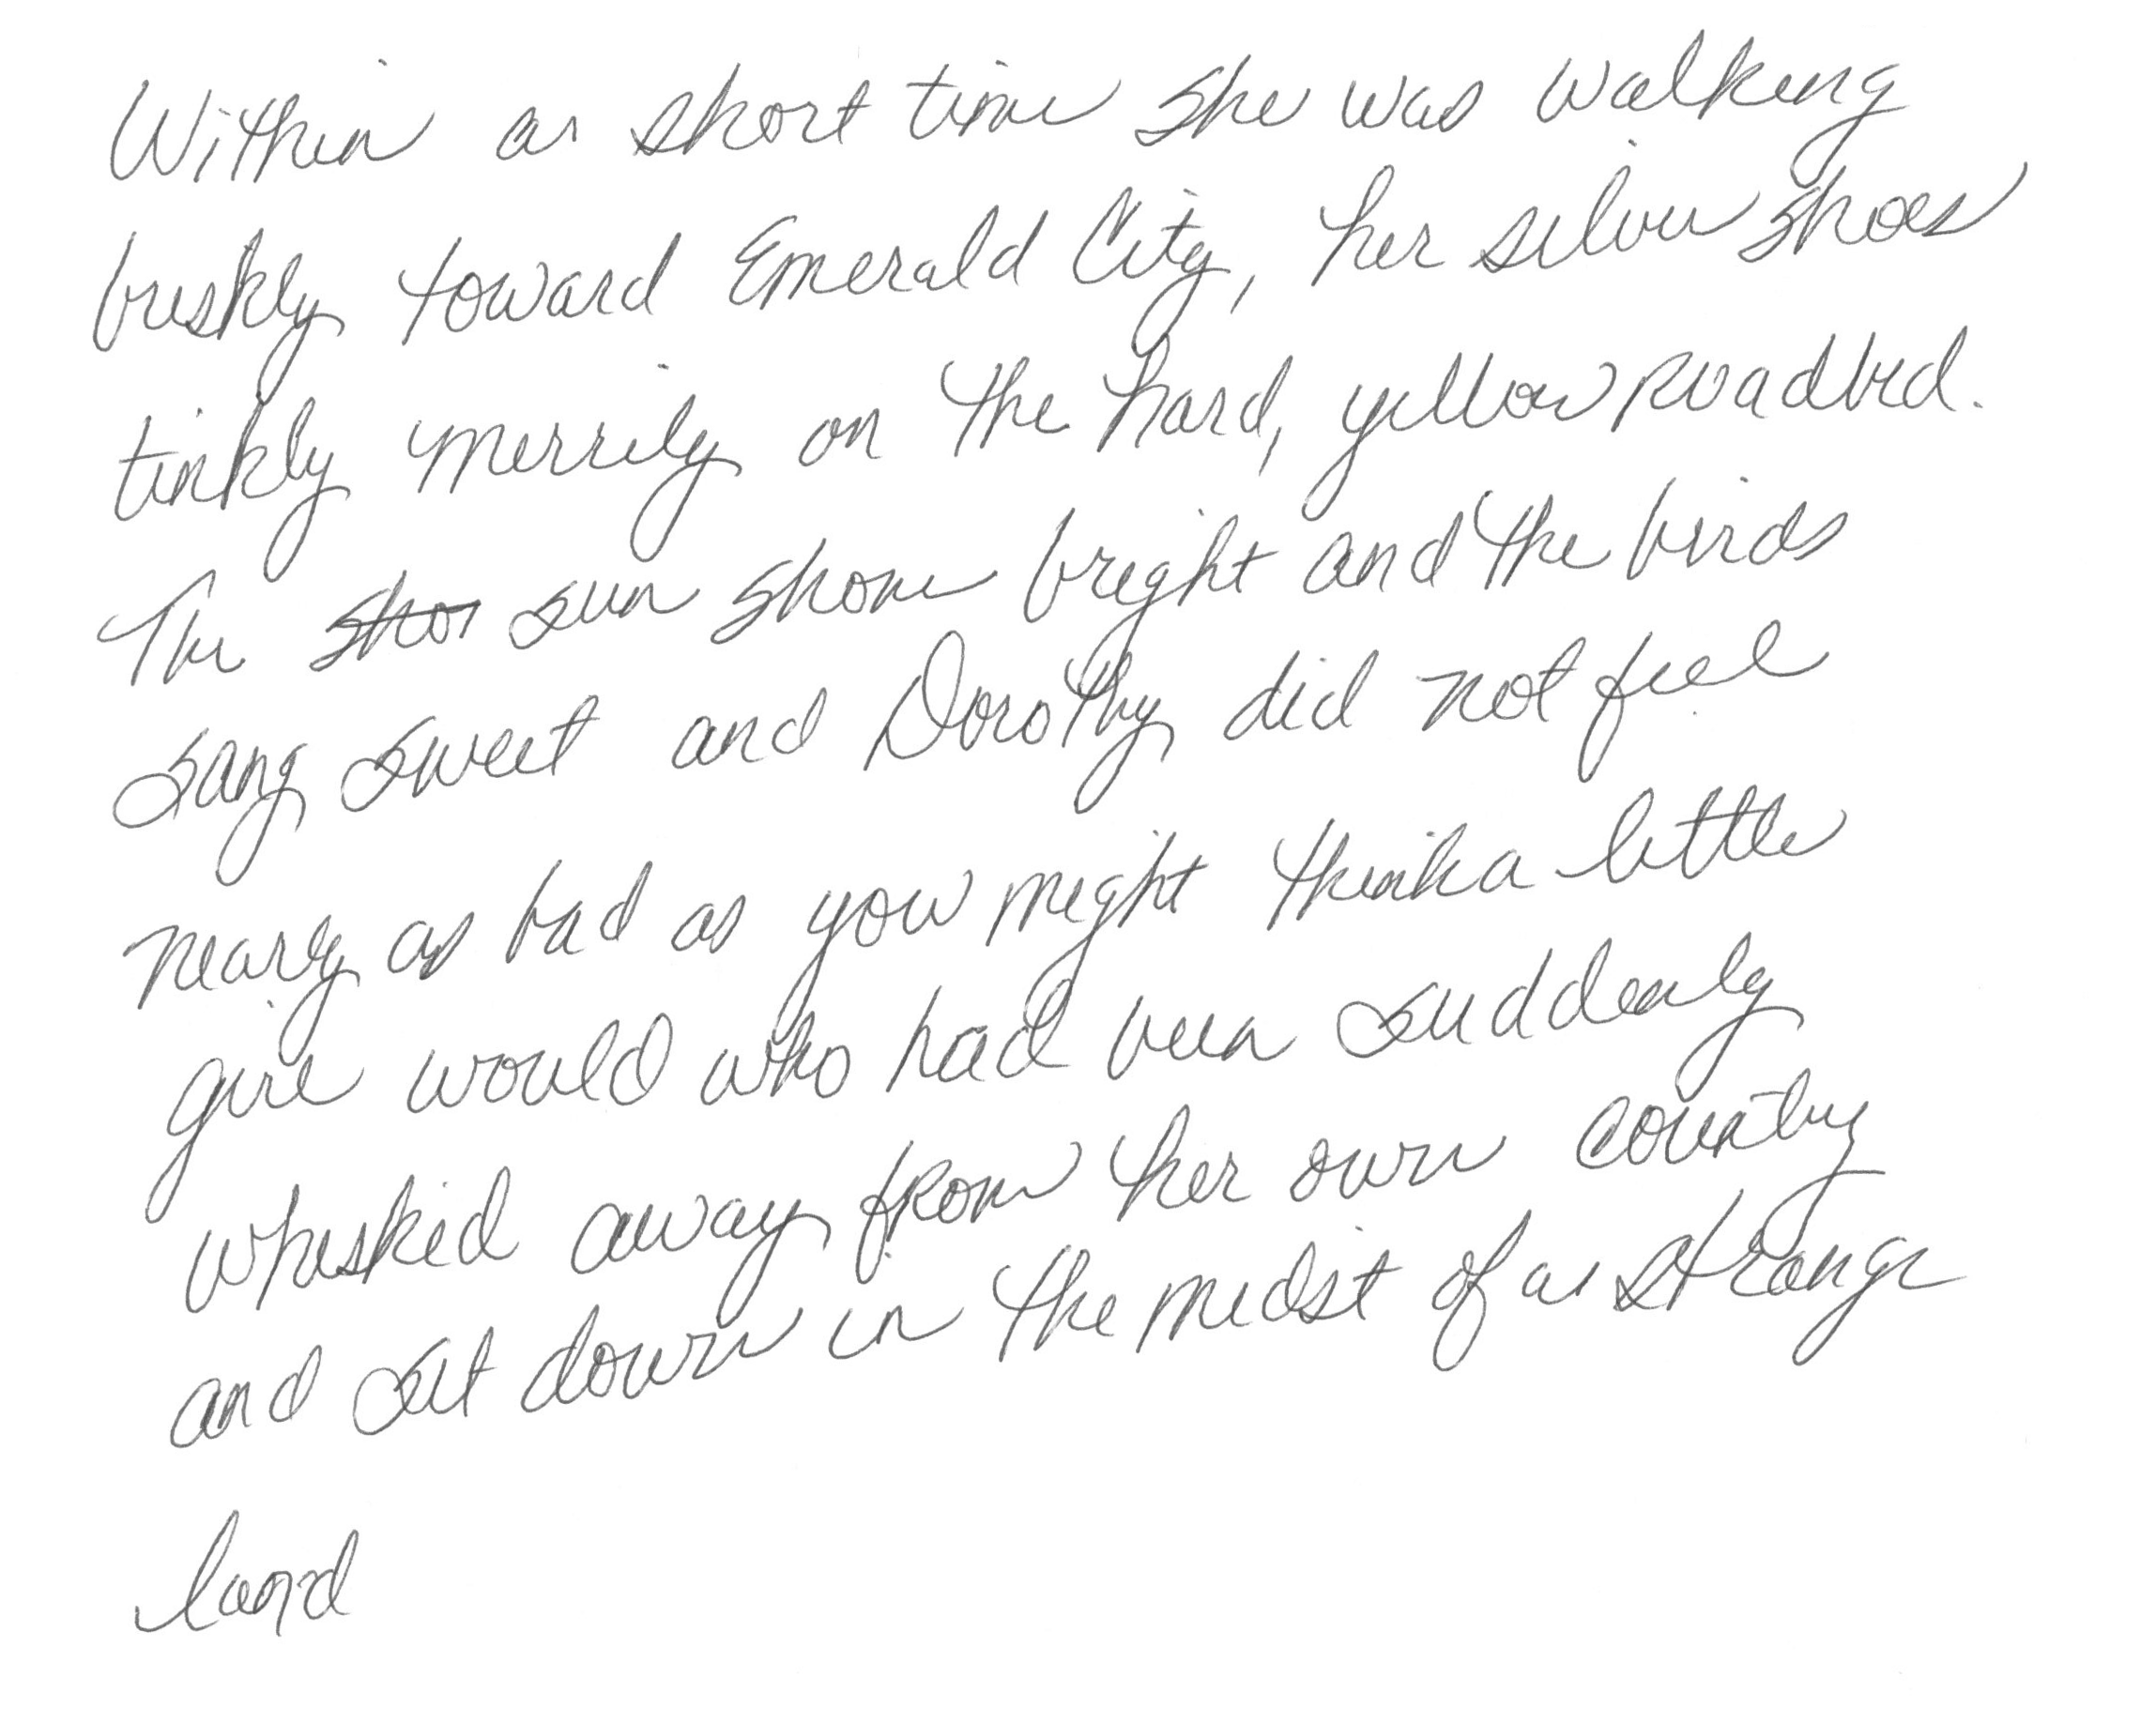 Within a short time she was walking
briskly toward Emerald City, her silver shoes
tinkly merrily on the hard, yellow roadbed.
The sho sun shone bright and the birds
sang sweet and Dorothy did not feel
nearly as bad as you might think a little
girl would who had been suddenly
whisked away from her own country
and set down in the midst of a strange
land